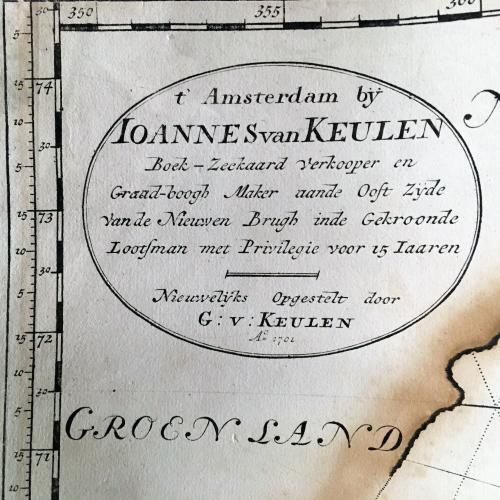 350 355 360
t' Amsterdam bÿ
IOANNES van KEULEN
Boek-Zeekaard Verkooper en
Graad-boogh Maker aande Ooſt Zÿde
van de Nieuwen Brugh inde Gekroonde
Lootſman met Privilegie voor 15 Iaaren
Nieuwelÿks Opgestelt door
G: v: KEULEN
Aº 1701
GROENLAND
74
73
72
71